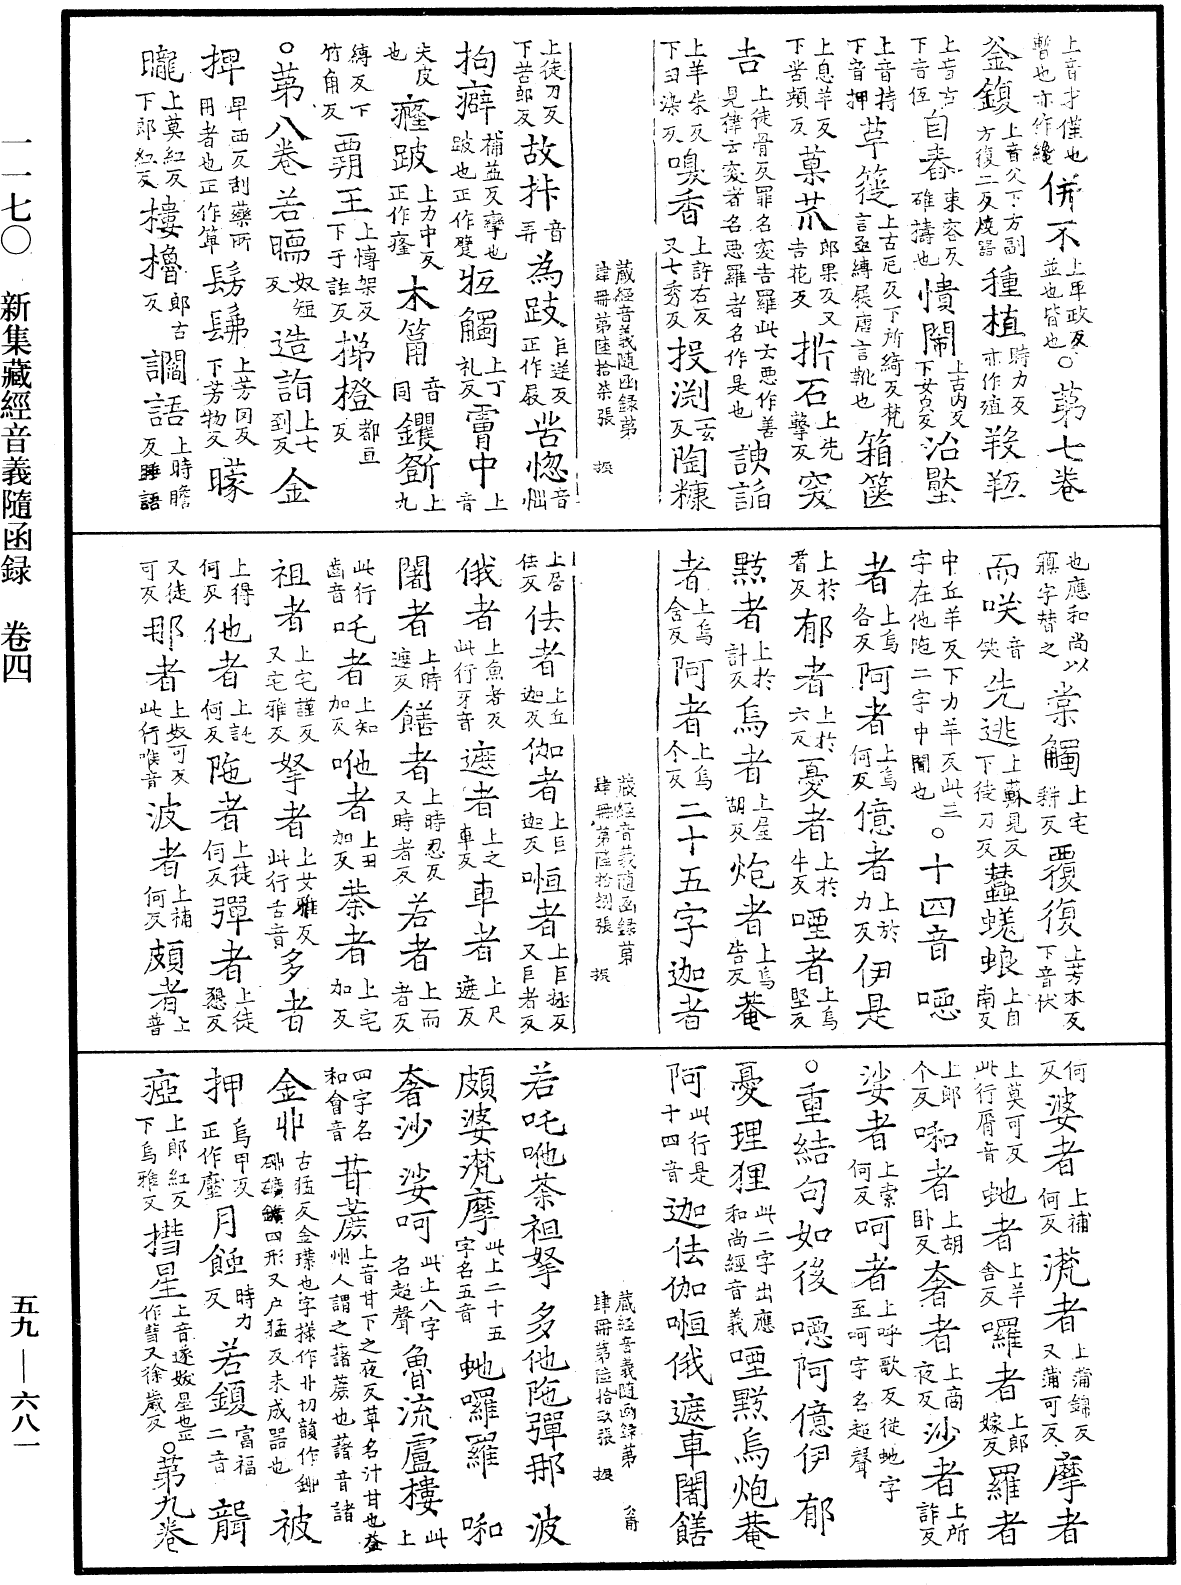 一一七〇　新集藏經音義隨函録　卷四
五九—六八一
上音才僅也暫也亦作纔 併不 上畢政反並也皆也 〇第七卷
釜鍑 上音父下方副方復二反燒器 種植 時力反亦作殖 羖羝
上音古下音低 自舂 束容反碓擣也 憒鬧 上古內反下女孝反 沿壂
上音持下音押 草簁 上古厄反下所綺反梵言亟縛屣唐言靴也 箱篋
上息羊反下苦頰反 菓苽 郎果反又古花反 斨石 上先擊反 突
吉 上徒骨反罪名突吉羅此云惡作善見律云突者名惡羅者名作是也 諛諂
上羊朱反下丑染反 嗅香 上許右反又七秀反 投渕 一玄反 陶糠
上徒刀反下苦郎反 故拤 音弄 為跂 巨逆反正作屐 苦惚 音惱
拘癖 補益反攣也跛也正作躄 牴觸 上丁礼反 霤中 上音
夫皮也 癃跛 上力中反正作㾮 木筩 音同 钁斵 上九
縛反下竹角反 覇王 上博架反下于誑反 㨑橙 都亘反
〇第八卷 若䁔 奴短反 造詣 上七到反 金
捭 早西反刮藥所用者也正作箄 髣髴 上芳罔反下芳物反 矇
朧 上莫紅反下郎紅反 樓櫓 郎古反 讇語 上時瞻反睡語
也應和尚以㝱字替之 棠觸 上宅耕反 覆復 上芳木反下音伏
而咲 音笑 先逃 上蘇見反下徒刀反 蠶蜣蜋 上自南反
中丘羊反下力羊反此三字在他陁二字中閒也 〇十四音 㗁
者 上烏各反 阿者 上烏何反 億者 上於力反 伊是
上於耆反 郁者 上於六反 憂者 上於牛反 哩者 上烏堅反
黟者 上於計反 烏者 上屋胡反 炮者 上烏告反 菴
者 上烏含反 阿者 上烏个反 二十五字 迦者
上居佉反 佉者 上丘迦反 伽者 上巨迦反 㖶者 上巨拯反又巨者反
俄者 上魚者反此行牙音 遮者 上之車反 車者 上尺遮反
闍者 上時遮反 饍者 上時忍反又時者反 若者 上而者反
此行齒音 吒者 上知加反 咃者 上丑加反 荼者 上宅加反
祖者 上宅謹反又宅雅反 拏者 上女雅反此行舌音 多者
上得何反 他者 上託何反 陁者 上徒何反 彈者 上徒懇反
又徒可反 那者 上奴可反此行喉音 波者 上補何反 頗者 上普
何反 婆者 上補何反 滼者 上蒲錦反又蒲可反 摩者
上莫可反此行脣音 虵者 上羊舍反 囉者 上郎嫁反 羅者
上郎个反 啝者 上胡卧反 奢者 上商夜反 沙者 上所詐反
娑者 上索何反 呵者 上呼歌反從虵字至呵字名超聲
〇重結句如後 㗁阿億伊 郁
憂理狸 此二字出應和尚經音義 哩黟烏炮菴
阿 此行是十四音 迦佉伽㖶俄 遮車闍饍
若吒咃荼祖拏 多他陁彈那 波
頗婆滼摩 此上二十五字名五音 虵囉羅 啝
奢沙 娑呵 此上八字名超聲 魯流盧樓 此上
四字名和會音 苷蔗 上音甘下之夜反草名汁甘也益州人謂之藷蔗也藷音諸
金丱 古猛反金璞也字樣作丱切韻作鉚砿礦鑛四形又户猛反未成器也 被
押 烏甲反正作壓 月蝕 時力反 若鍑 富福二音 聾
瘂 上郎紅反下烏雅反 㨹星 上音遂妖星也正作彗又徐歲反 〇第九卷
藏經音義隨函録第肆册第陸拾柒張 㨷
藏經音義隨函録第肆册第陸拾捌張 㨷
藏經音義隨函録第肆册第陸拾玖張 㨷